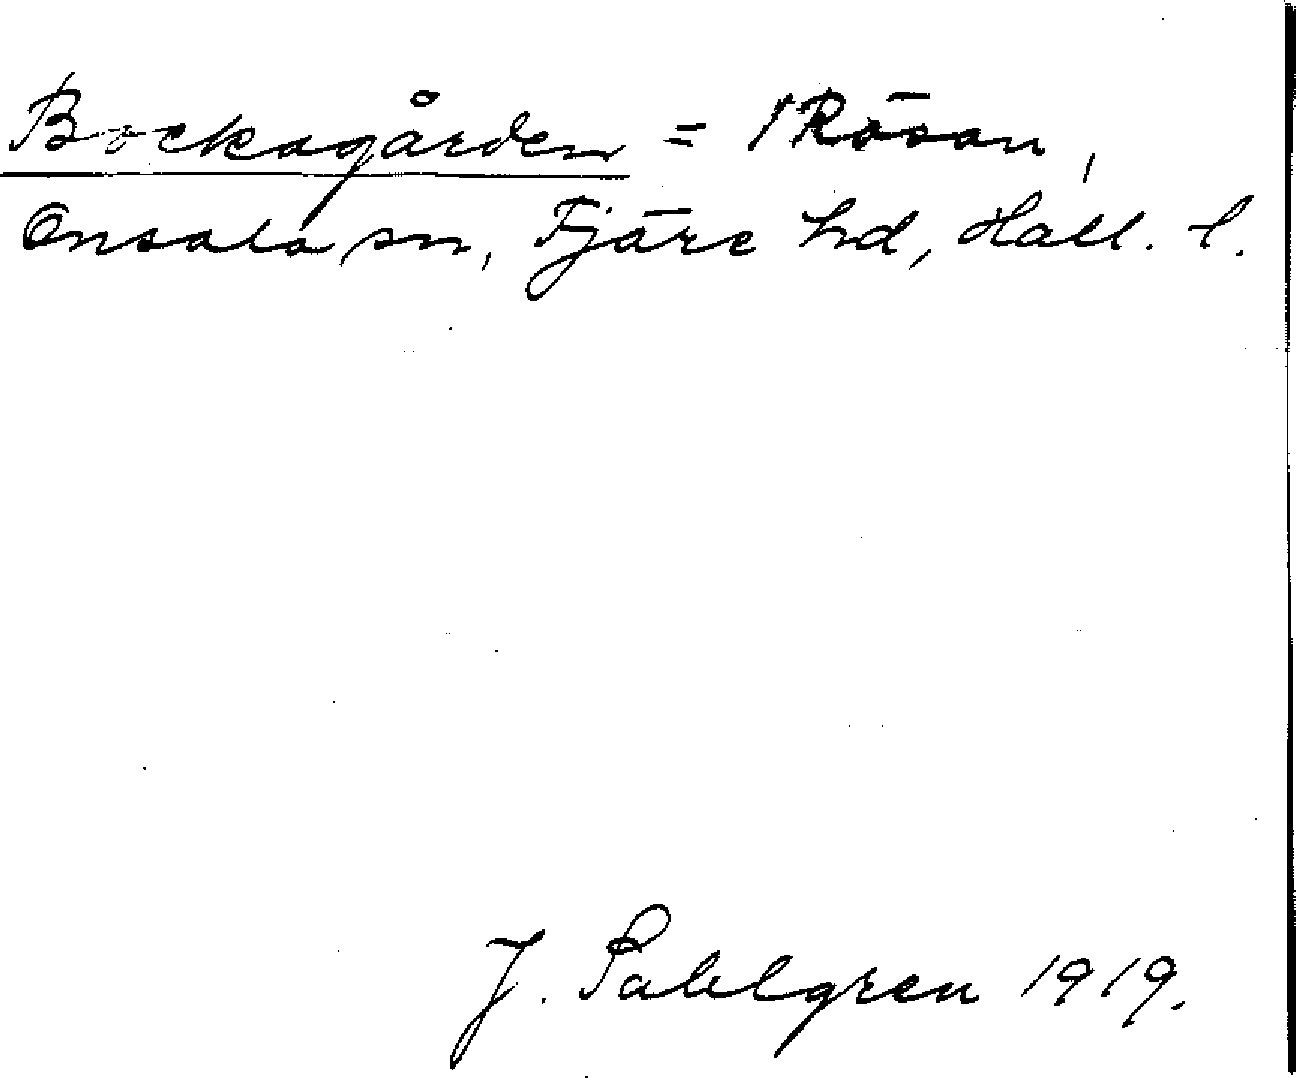 Bockagården = 1 Rösan,
Onsala sn, Fjäre hd, Hall. l.
J. Sahlgren 1919.